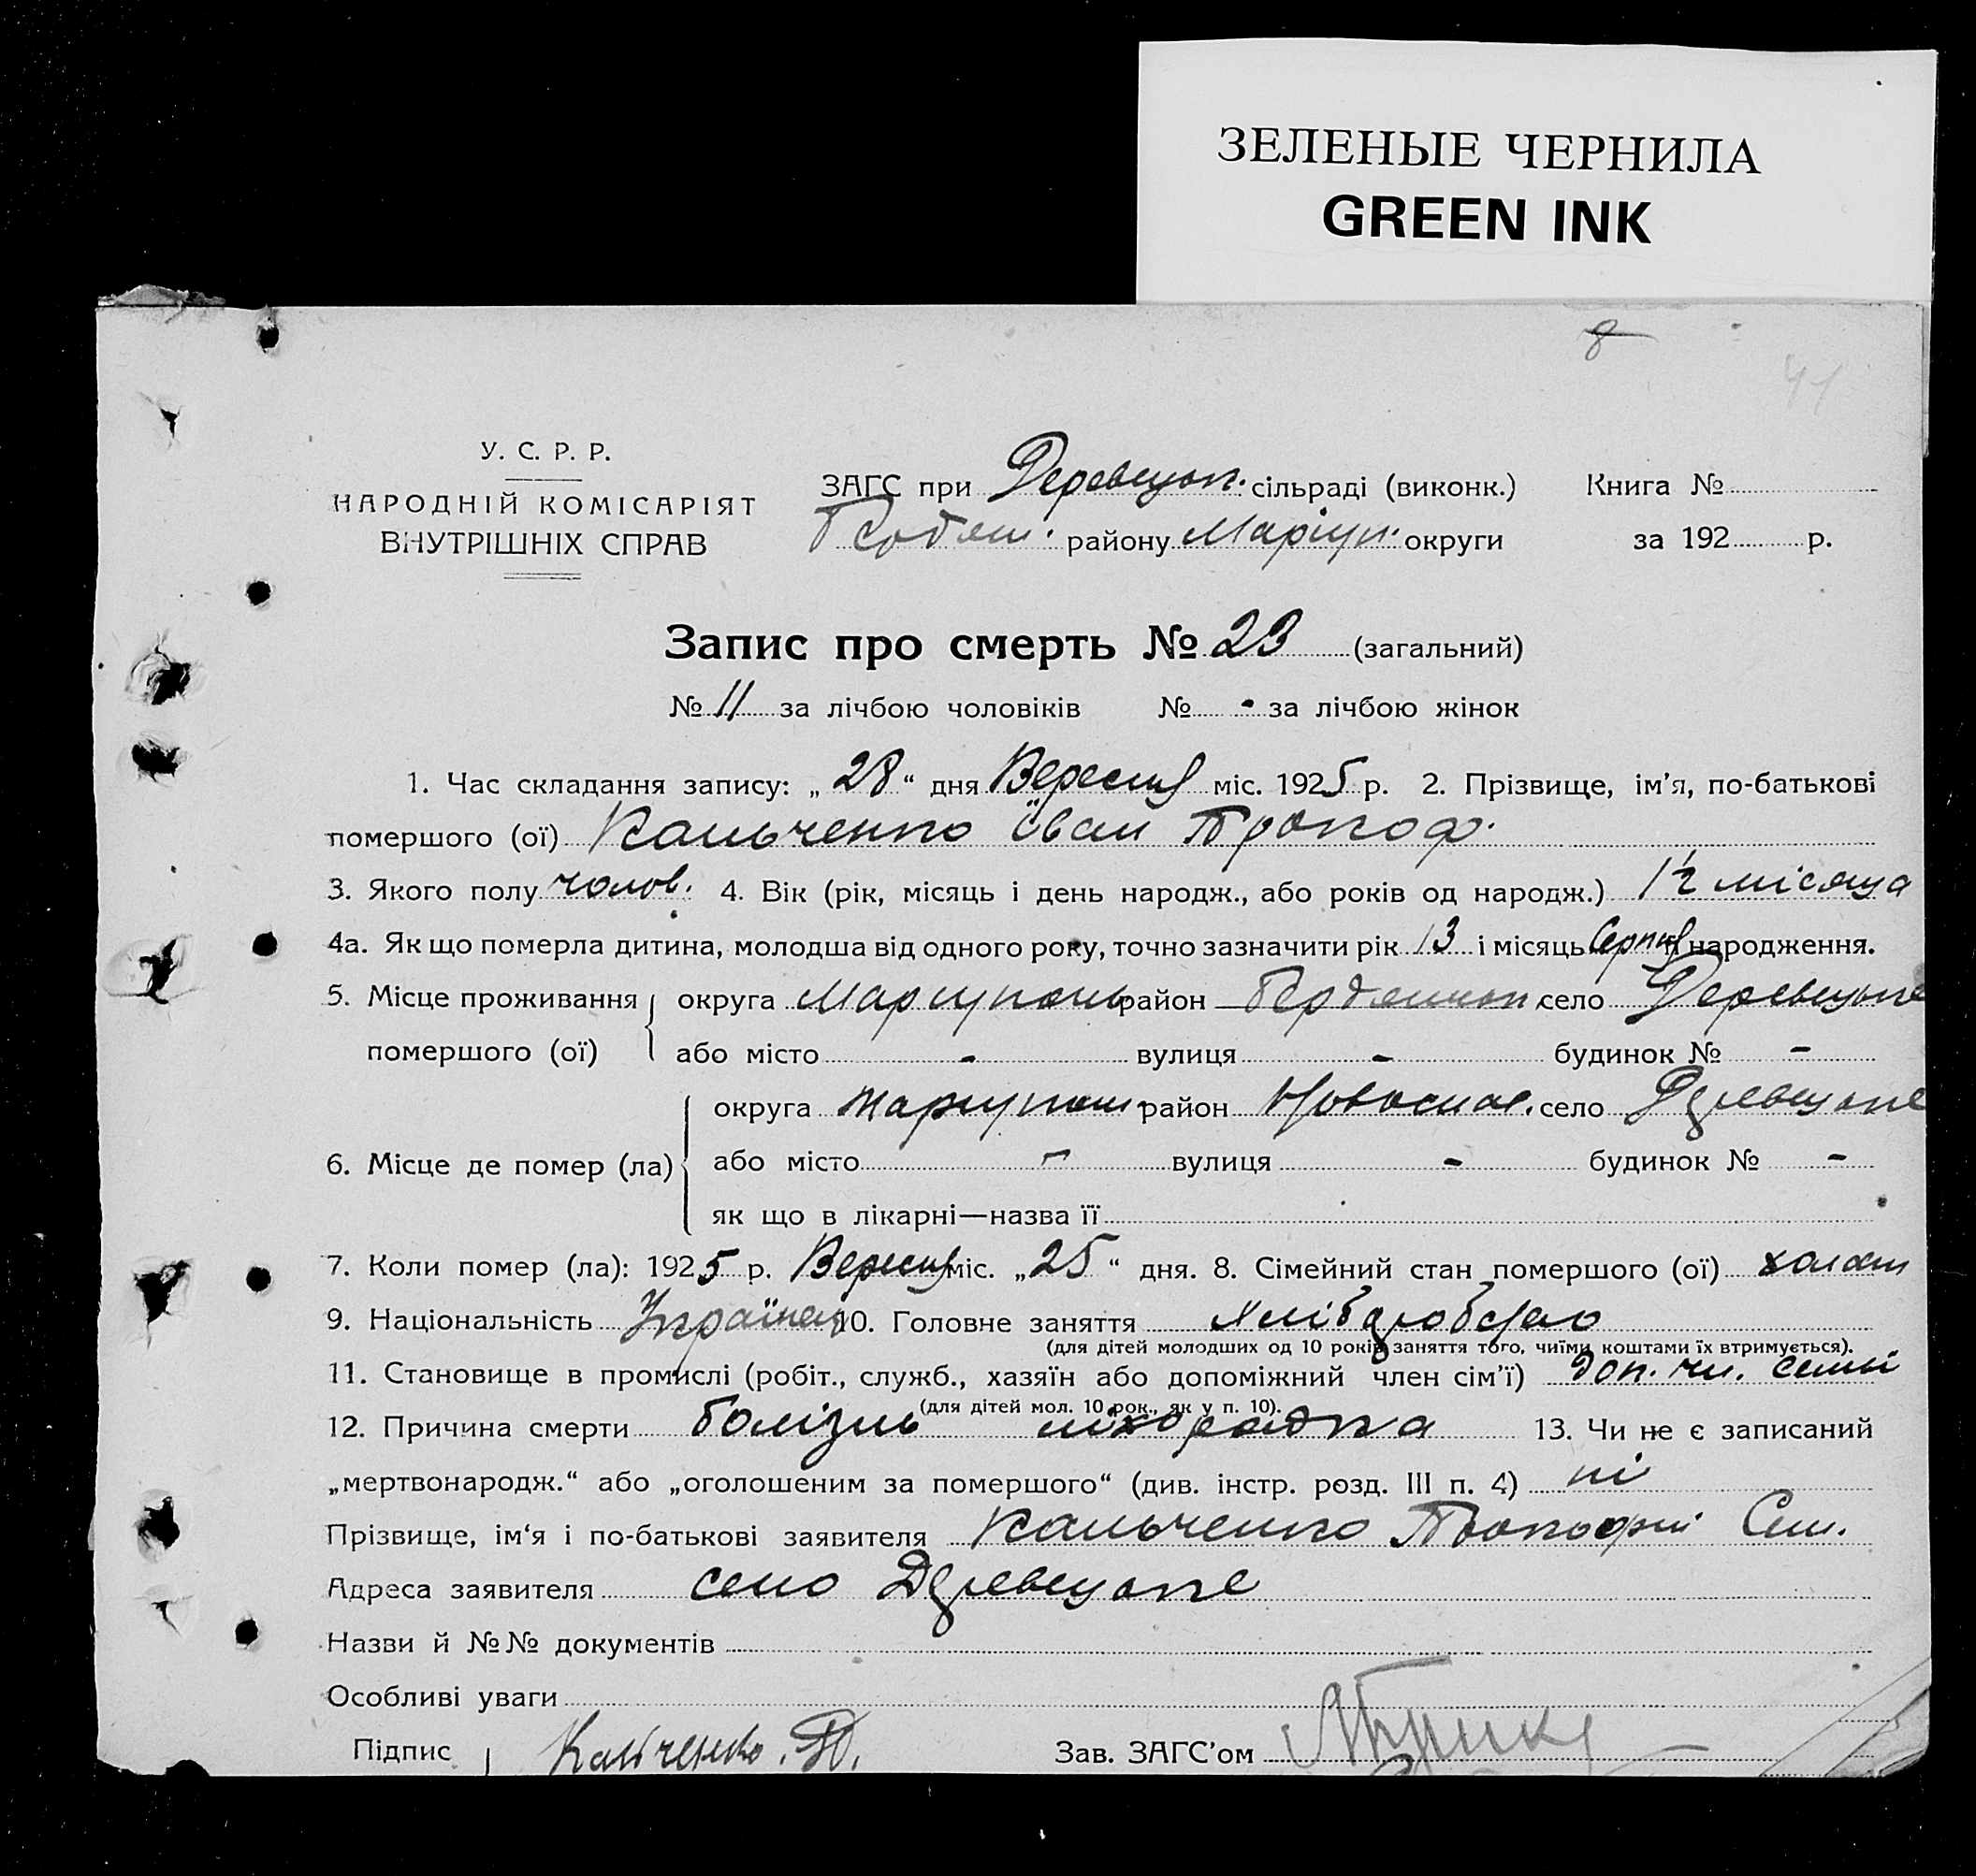 ЗЕЛЕНЫЕ ЧЕРНИЛА
GREEN INK
8
41
У. С. Р. Р.
НАРОДНІЙ КОМІСАРІЯТ
ВНУТРІШНІХ СПРАВ
ЗАГС при Деревецьк. сільраді (виконк.) Книга №
району Маріуп. округи за 192 р.
Запис про смерть № 23 (загальний)
№ 11 за лічбою чоловіків № - за лічбою жінок
1. Час складання запису: „28“ дня Вересня міс. 1925 р. 2. Прізвище, ім’я, по-батькові
помершого (ої) Кальченко Іван Прокоф.
3. Якого полу чолов. 4. Вік (рік, місяць і день народж., або років од народж.) 1½ місяца
4а. Як що померла дитина, молодша від одного року, точно зазначити рік 13 і місяць Серпня народження.
5. Місце проживання округа Маріупольс район село
помершого (ої) або місто - вулиця - будинок № -
округа район село
6. Місце де помер (ла) або місто - вулиця - будинок № -
як що в лікарні—назва її
7. Коли помер (ла): 1925 р. Вересня міс. „25“ дня. 8. Сімейний стан помершого (ої) холост
9. Національність Українец 10. Головне заняття
(для дітей молодших од 10 років заняття того, чиїми коштами їх втримується).
11. Становище в промислі (робіт., служб., хазяїн або допоміжний член сім’ї) доп. чл. семьї
(для дітей мол. 10 рок., як у п. 10).
12. Причина смерти болізнь ліхорадка 13. Чи не є записаний
„мертвонародж.“ або „оголошеним за помершого“ (див. інстр. розд. III п. 4) ні
Прізвище, ім‘я і по-батькові заявителя Кальченко Прокофій Сем.
Адреса заявителя село
Назви й №№ документів
Особливі уваги
Підпис Кальченко. П. Зав. ЗАГС’ом